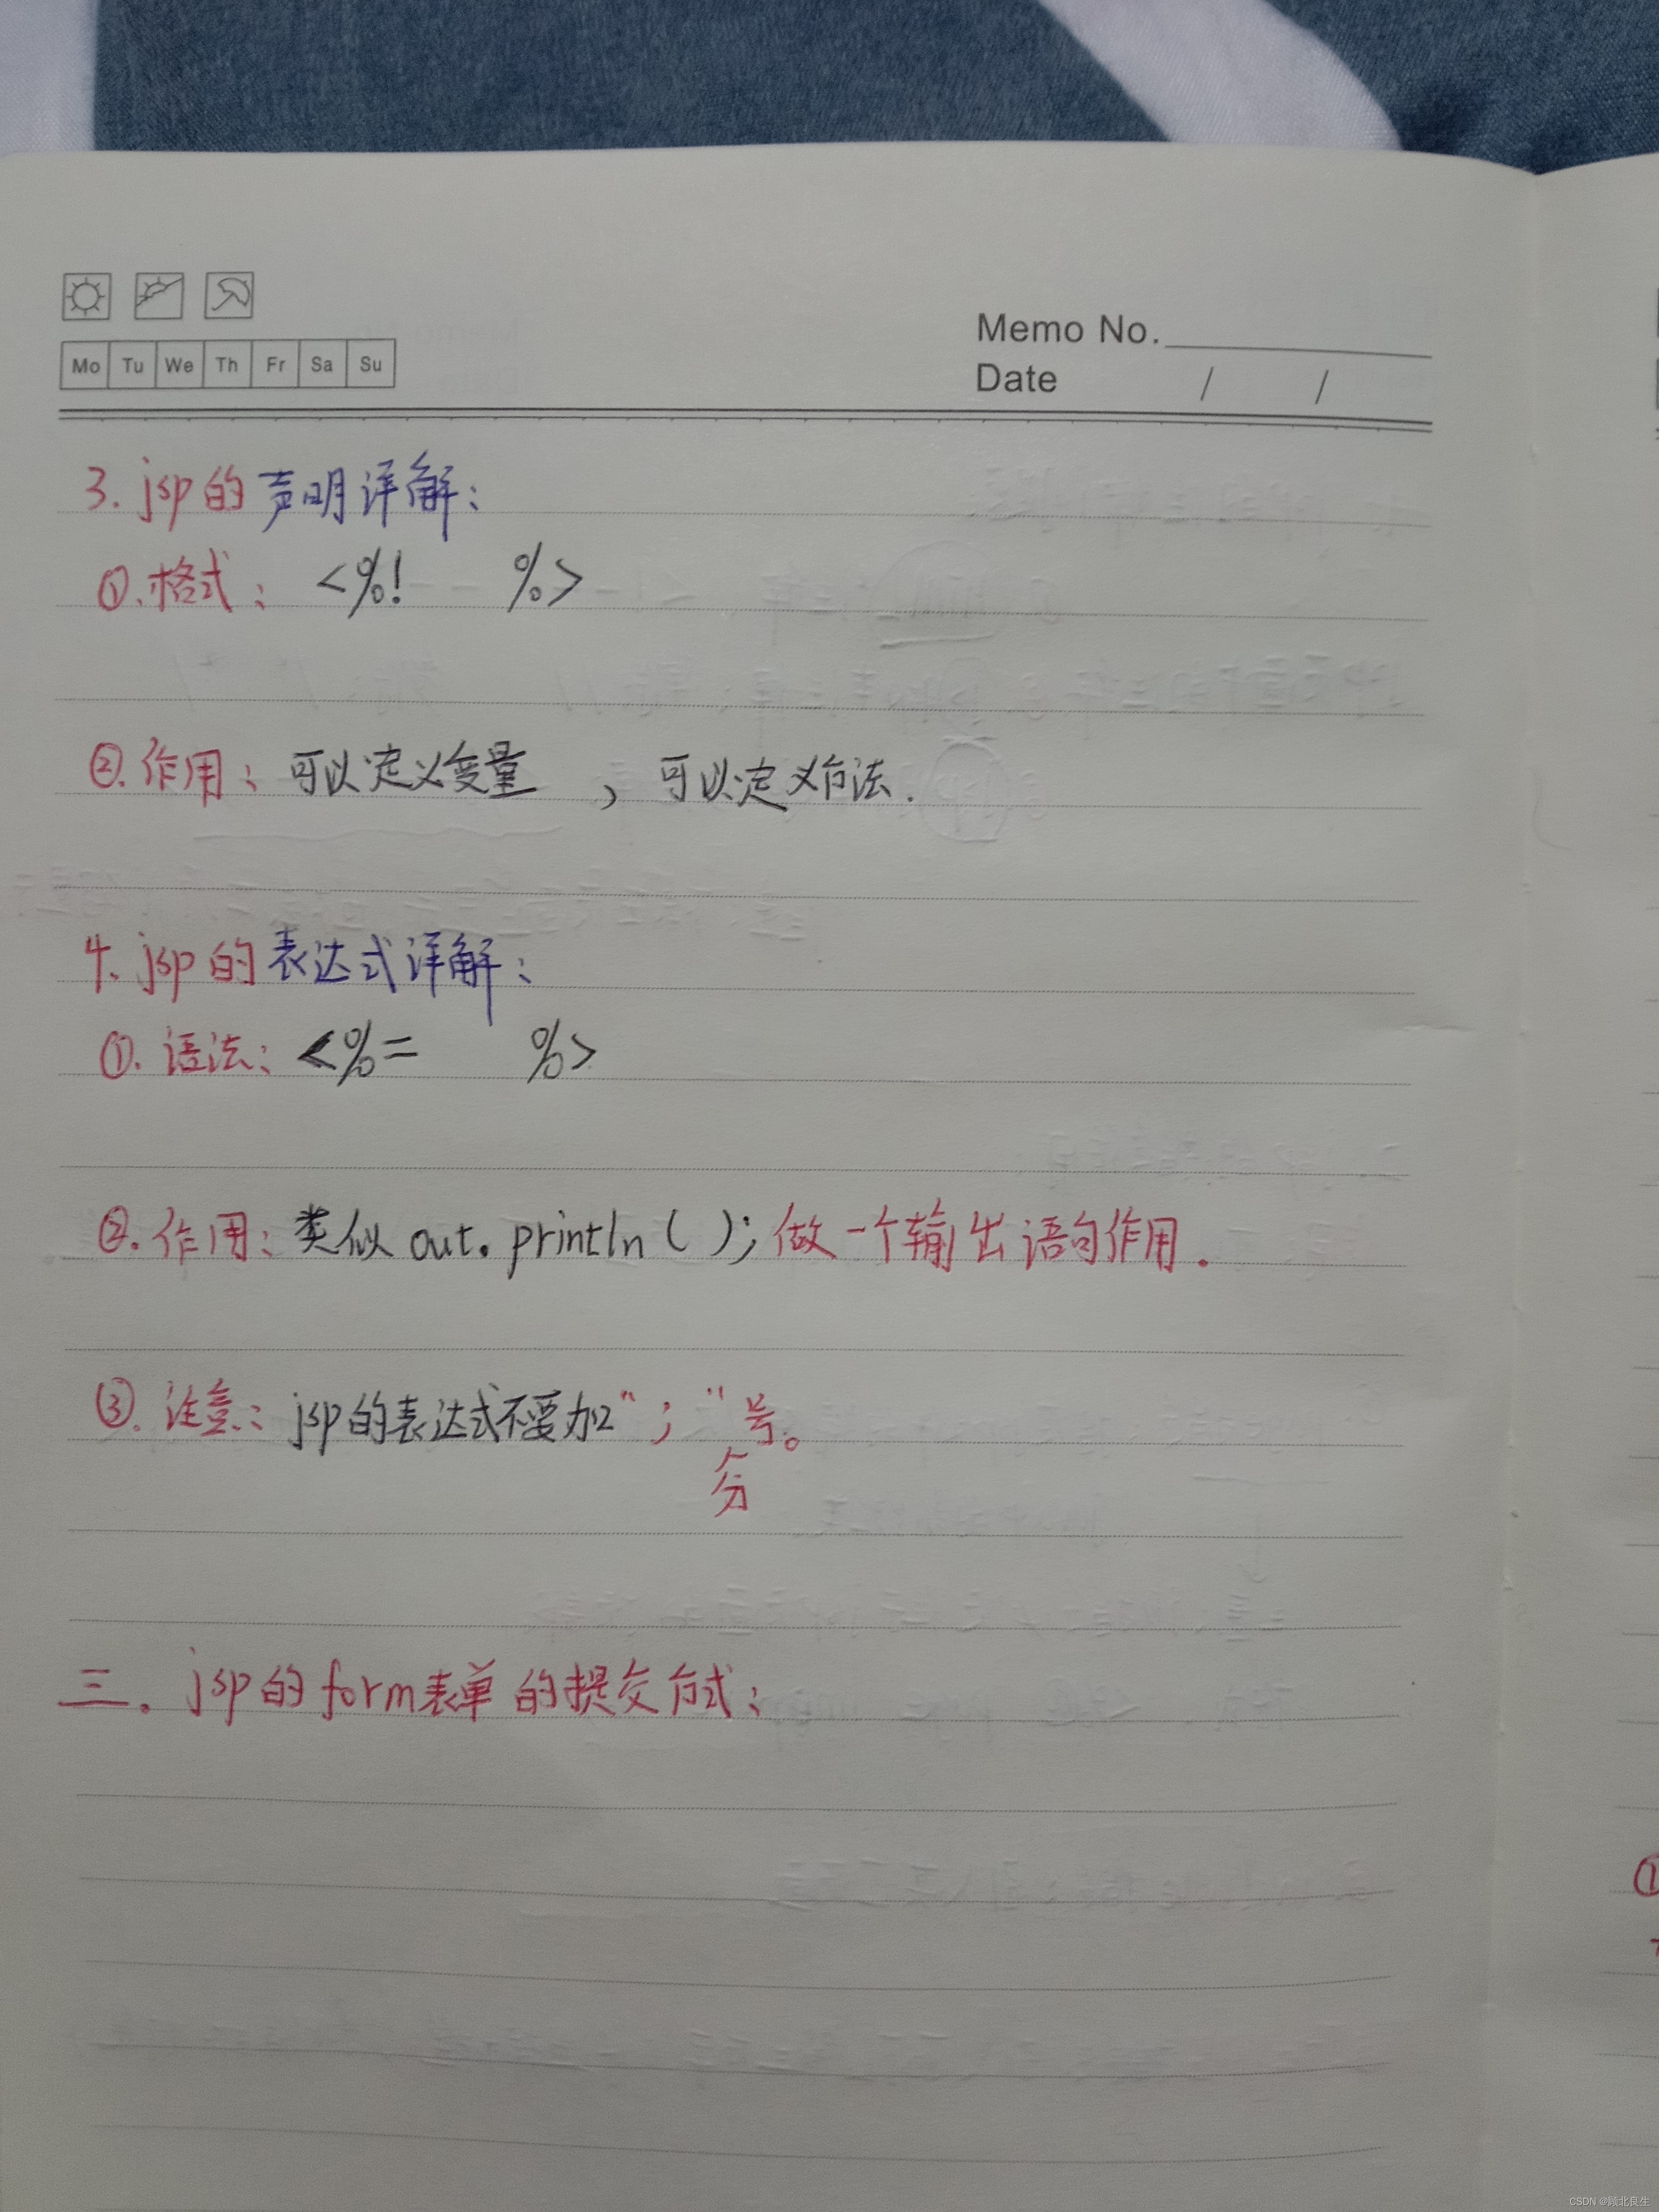 Mo Tu We Th Fr Sa Su
Memo No.
Date / /
3. jsp的声明详解:
①.格式: <%! %>
②.作用: 可以定义变量 , 可以定义方法.
4. jsp的表达式详解:
①. 语法: <%= %>
②.作用: 类似 out.println ( ); 做一个输出语句作用.
③. 注意: jsp的表达式不要加“ ; ”号。
分
三. jsp的form表单的提交方式:
①
CSDN @顾北良生